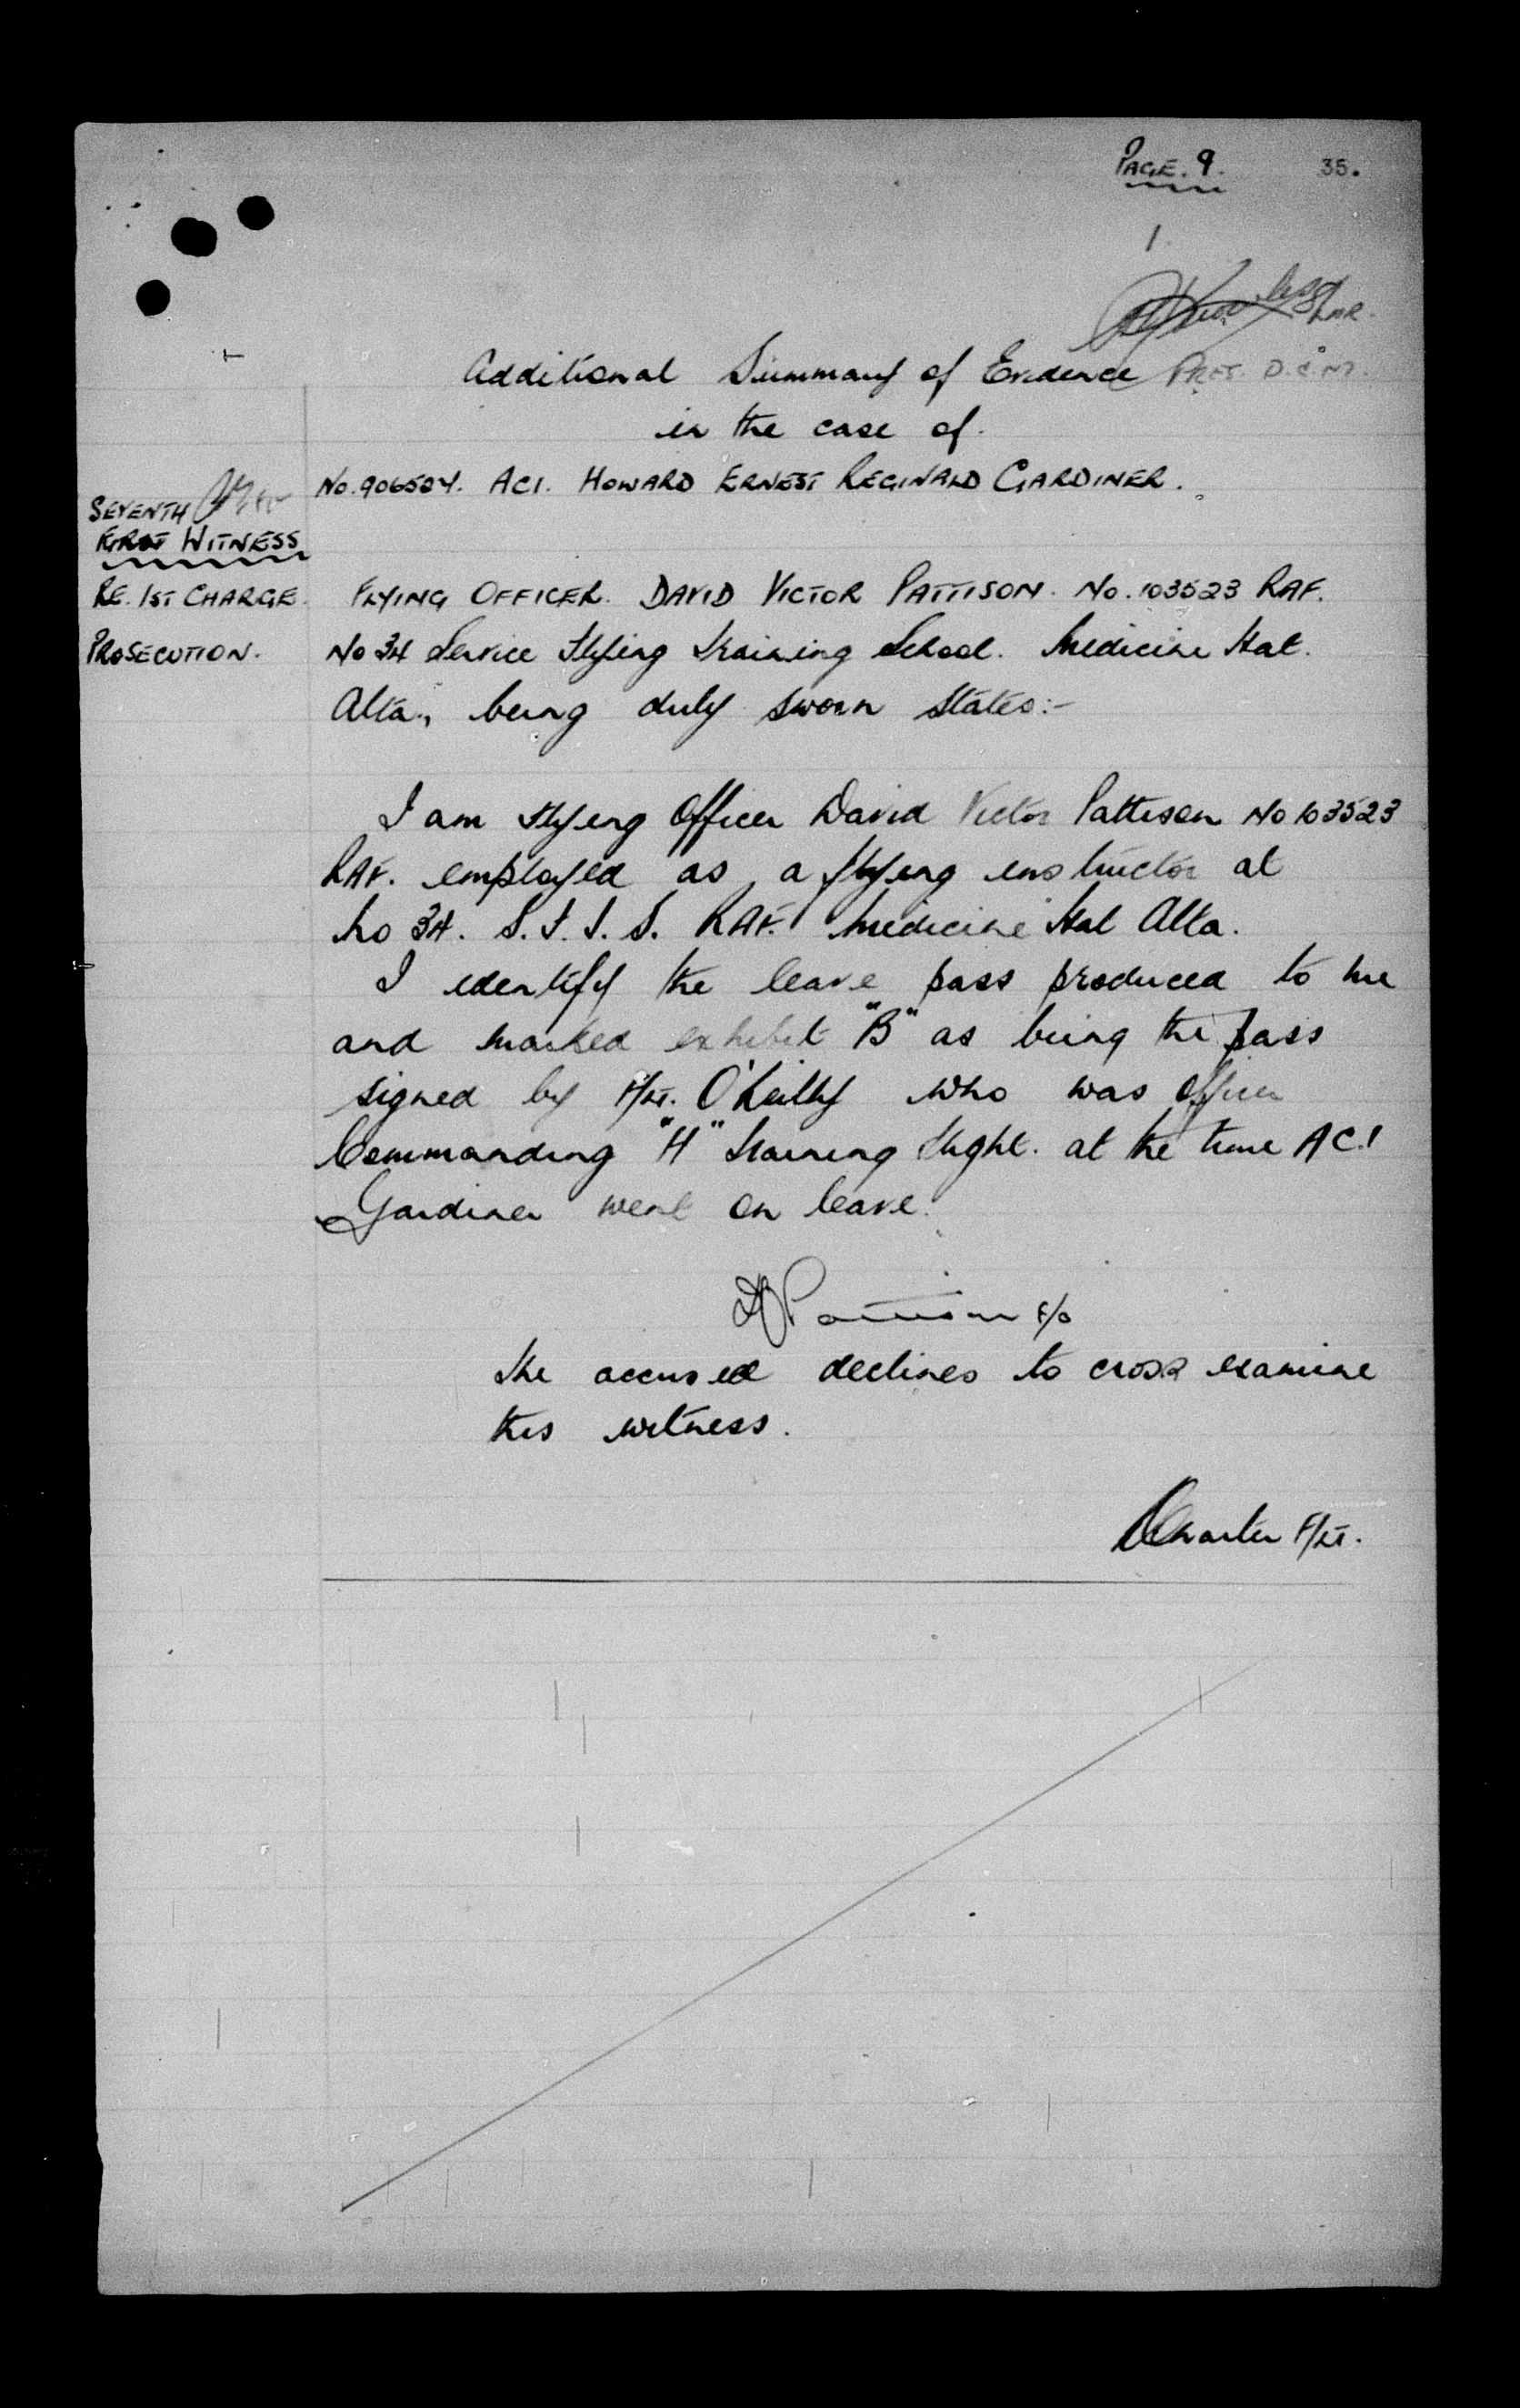 PAGE. 9.
35.
1.
S/LDR.
Additional Summary of Evidence PRES. D.C.M.
in the case of.
No. 906504. AC1. HOWARD ERNEST REGINALD GARDINER.
SEVENTH
FIRST WITNESS
RE. 1ST CHARGE.
PROSECUTION.
FLYING OFFICER. DAVID VICTOR PATTISON. No. 103523 RAF.
No 34 Service Flying Training School. Medicine Hat.
Alta, being duly sworn states:-
I am Flying Officer David Victor Pattison No 103523
RAF. employed as a flying instructor at
No 34. S.F.T.S. RAF. Medicine Hat Alta.
I identify the leave pass produced to me
and marked exhibit "B" as being the pass
signed by F/Lt. O'Reilly who was Officer
Commanding "H" Training Flight. at the time AC.1
Gardiner went on leave.
DVPattison F/O
The accused declines to cross examine
this witness.
F/Lt.